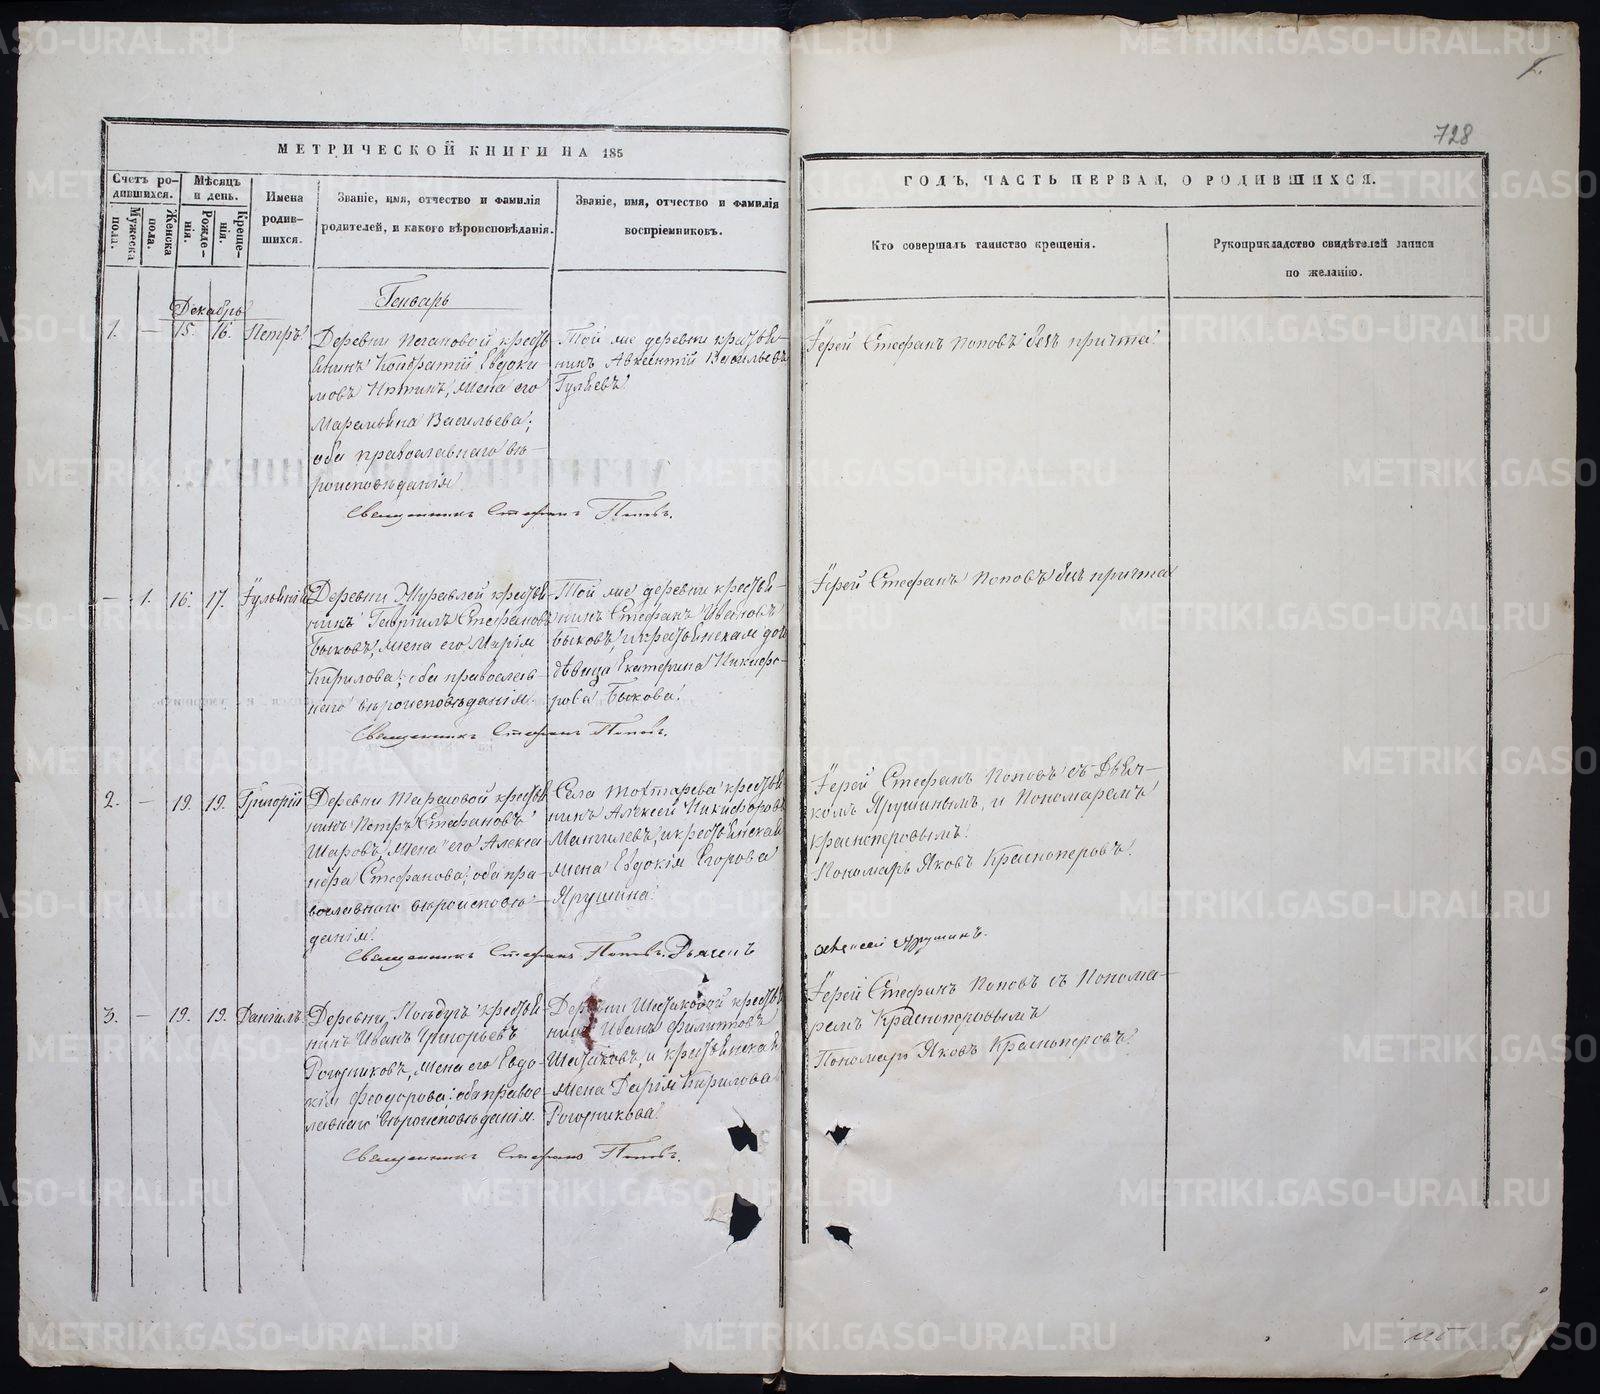 728
МЕТРИЧЕСКОЙ КНИГИ НА 185
ГОДЪ, ЧАСТЬ ПЕРВАЯ, О РОДИВШИХСЯ.
Счетъ ро-
дившихся.
Мужеска
пола.
Женска
пола.
Мѣсяцъ
и день.
Рожде-
нія.
Креще-
нія.
Имена
родив-
шихся.
Званіе, имя, отчество и фамилія
родителей, и какого вѣроисповѣданія.
Званіе, имя, отчество и фамилія
воспріемниковъ.
Кто совершалъ таинство крещенія.
Рукоприкладство свидѣтелей записи
по желанію.
Генварь
Декабрь
1. — 15. 16. Петръ.
Деревни крестья-
нинъ Кондратій Евдоки-
мовъ жена его
Васильева;
оба православнаго вѣ-
роисповѣданія.
Священникъ Стефанъ Поповъ.
Той же деревни крестья-
нинъ Авксентій Васильевъ
Гуляевъ.
Іерей Стефанъ Поповъ безъ причта.
— 1. 16. 17. Іуліанія
Деревни крестья-
нинъ Гавріилъ Стефановъ
Быковъ, жена его Марія
Кирилова; оба православ-
наго вѣроисповѣданія.
Священникъ Стефанъ Поповъ.
Той же деревни крестья-
нинъ Стефанъ Ивановъ
Быковъ, и крестьянская дочь
дѣвица Екатерина Никифо-
рова Быкова.
Іерей Стефанъ Поповъ безъ причта
2. — 19. 19. Григорій
Деревни Тарасовой крестья-
нинъ Петръ Стефановъ
Шаровъ, жена его Алекса-
ндра Стефанова; оба пра-
вославнаго вѣроисповѣ-
данія.
Священникъ Стефанъ Поповъ. Дьячекъ
Села Тохтарева крестья-
нинъ Алексей Никифоровъ
Мангилевъ, и крестьянская
жена Евдокія Егорова
Ярушина.
Іерей Стефанъ Поповъ съ Дьяч-
комъ Ярушинымъ, и Пономаремъ
Красноперовымъ.
Пономарь Яковъ Красноперовъ.
Алексей Ярушинъ.
3. — 19. 19. Даніилъ
Деревни крестья-
нинъ Иванъ Григорьевъ
Рогожниковъ, жена его Евдо-
кія Феодорова; оба право-
славнаго вѣроисповѣданія.
Священникъ Стефанъ Поповъ.
Деревни крестья-
нинъ Иванъ Филипповъ
и крестьянская
жена Дарія Кирилова
Рогожникова.
Іерей Стефанъ Поповъ съ Понома-
ремъ Красноперовымъ
Пономарь Яковъ Красноперовъ.
METRIKI.GASO-URAL.RU